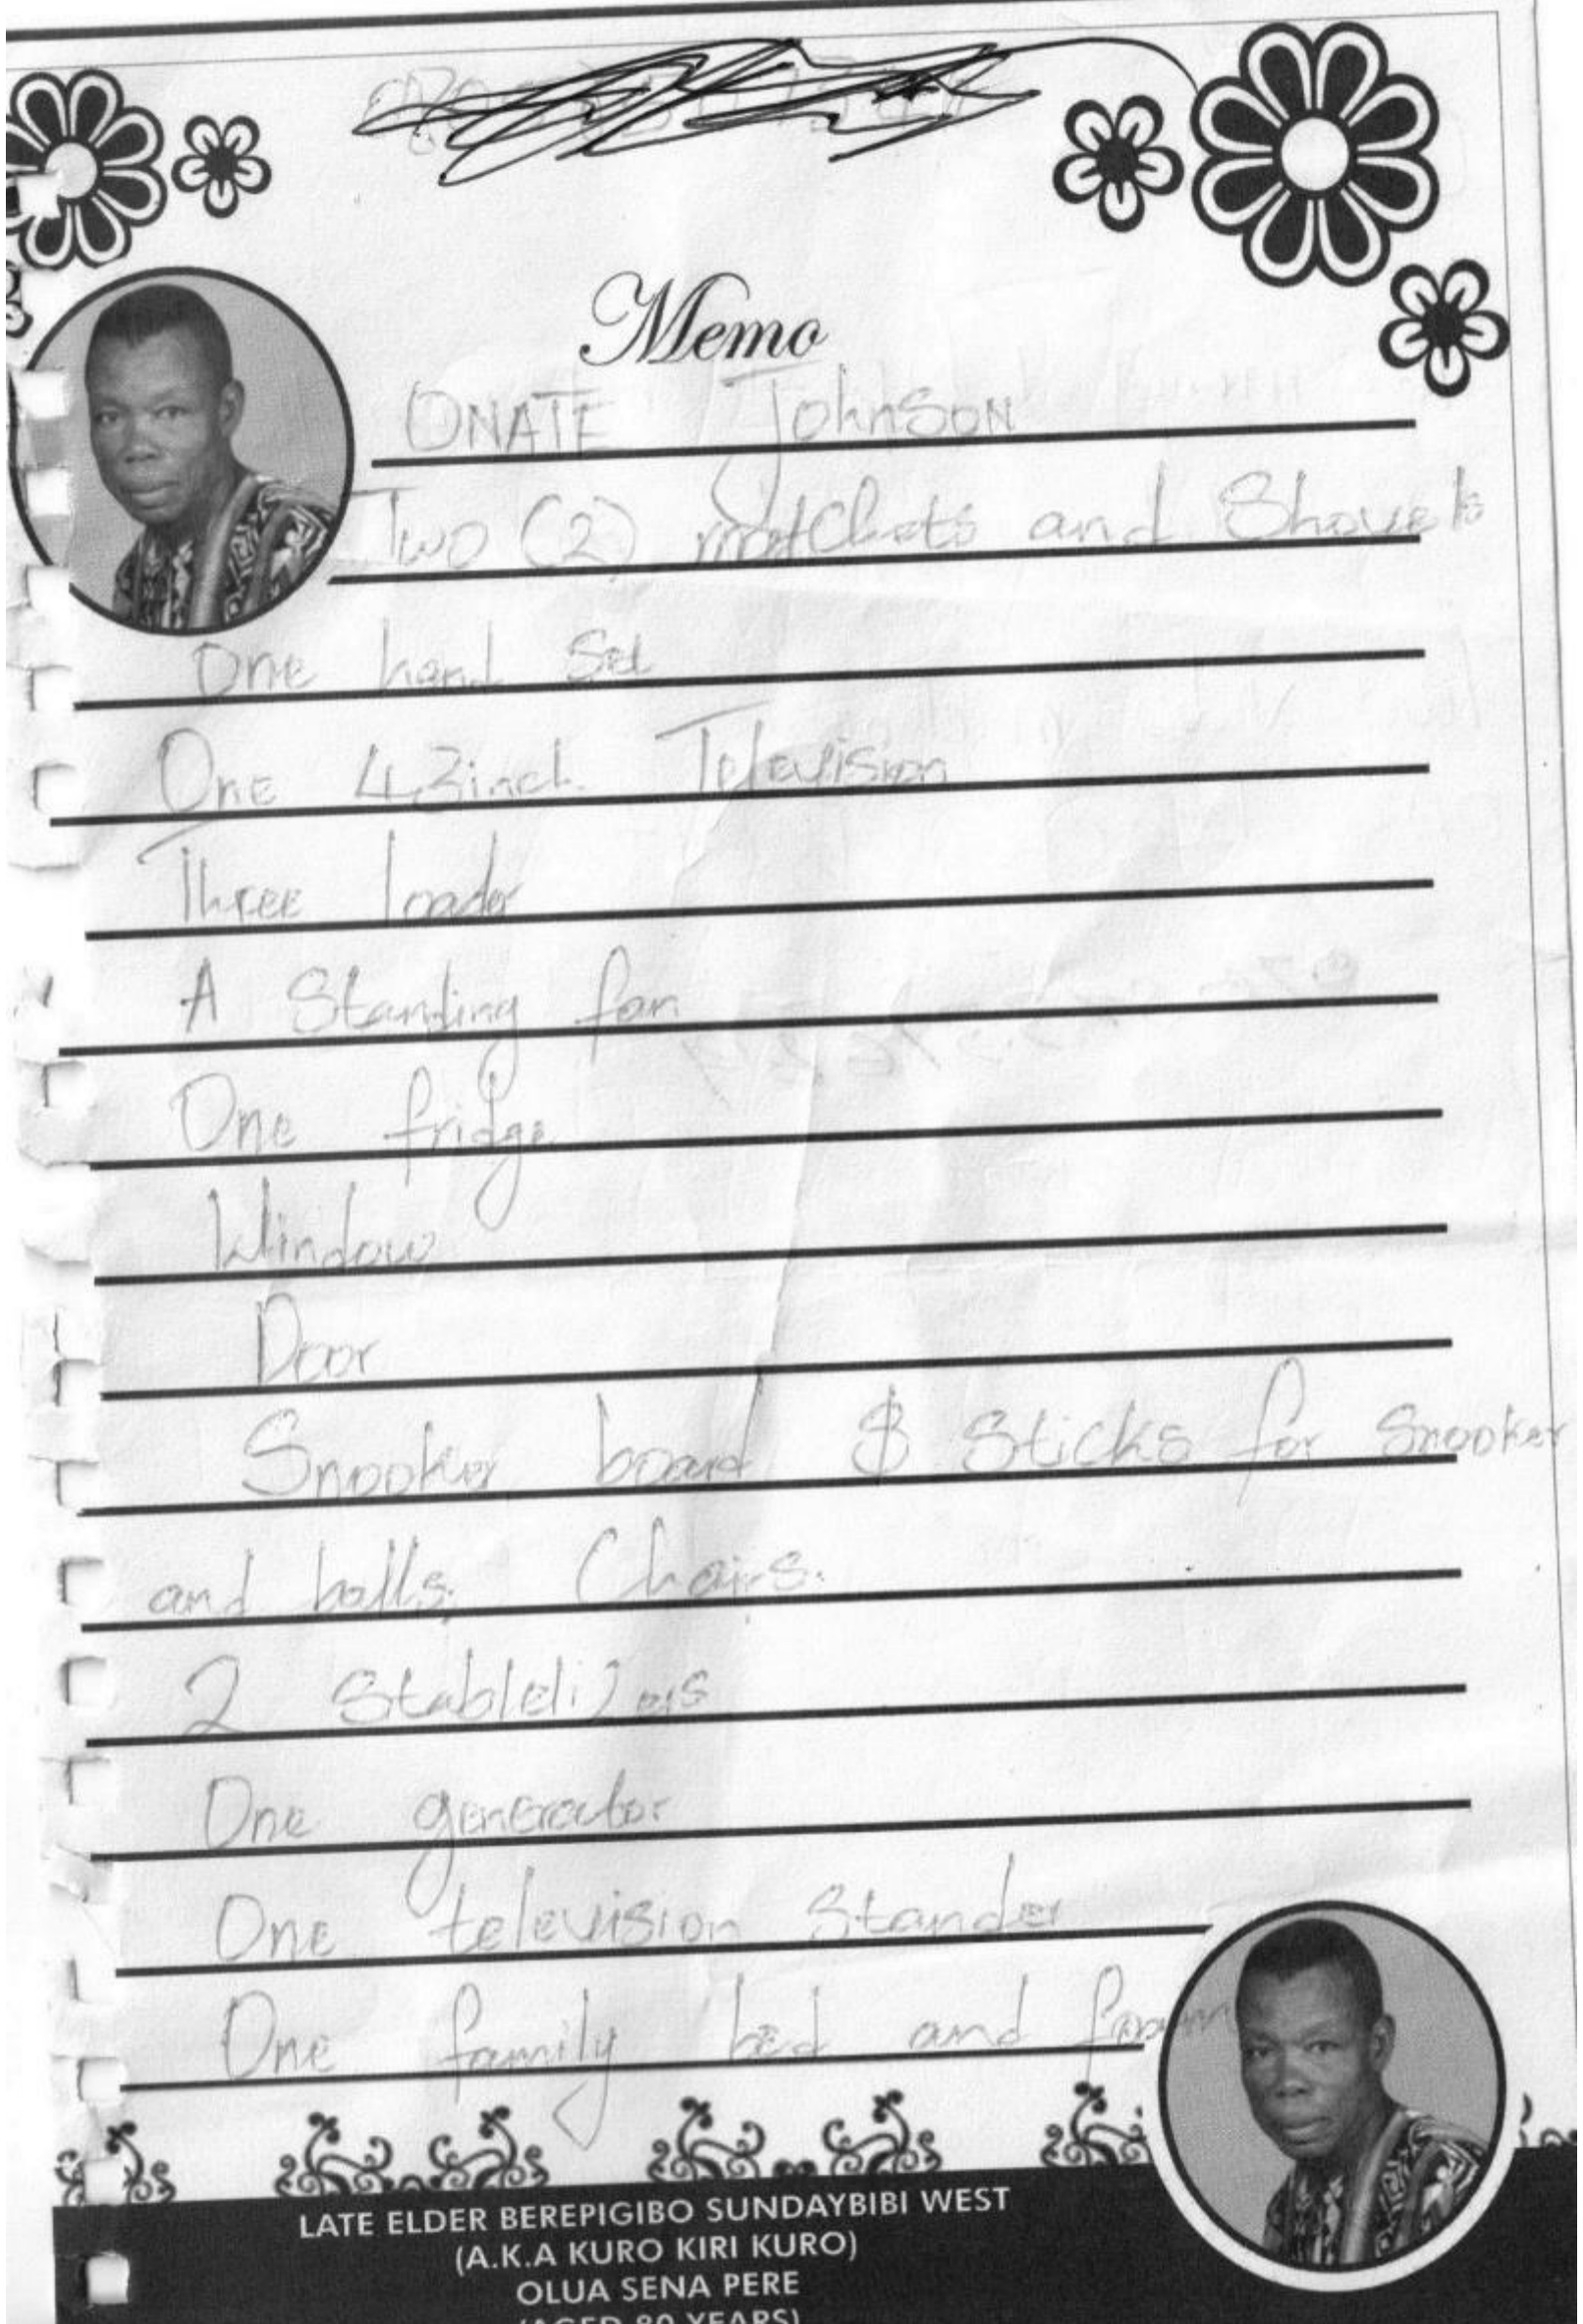 Memo
ONATE Johnson
Two (2) matchets and Shovels
One hand Set
One 43inch Television
Three loader
A Standing fan
One fridge
Window
Door
Snooker board $ Sticks for Snooker
and balls. Chairs.
2 Stablelizers
One generator
One television Stander
One family bed and foam
LATE ELDER BEREPIGIBO SUNDAYBIBI WEST
(A.K.A KURO KIRI KURO)
OLUA SENA PERE
(AGED 80 YEARS)